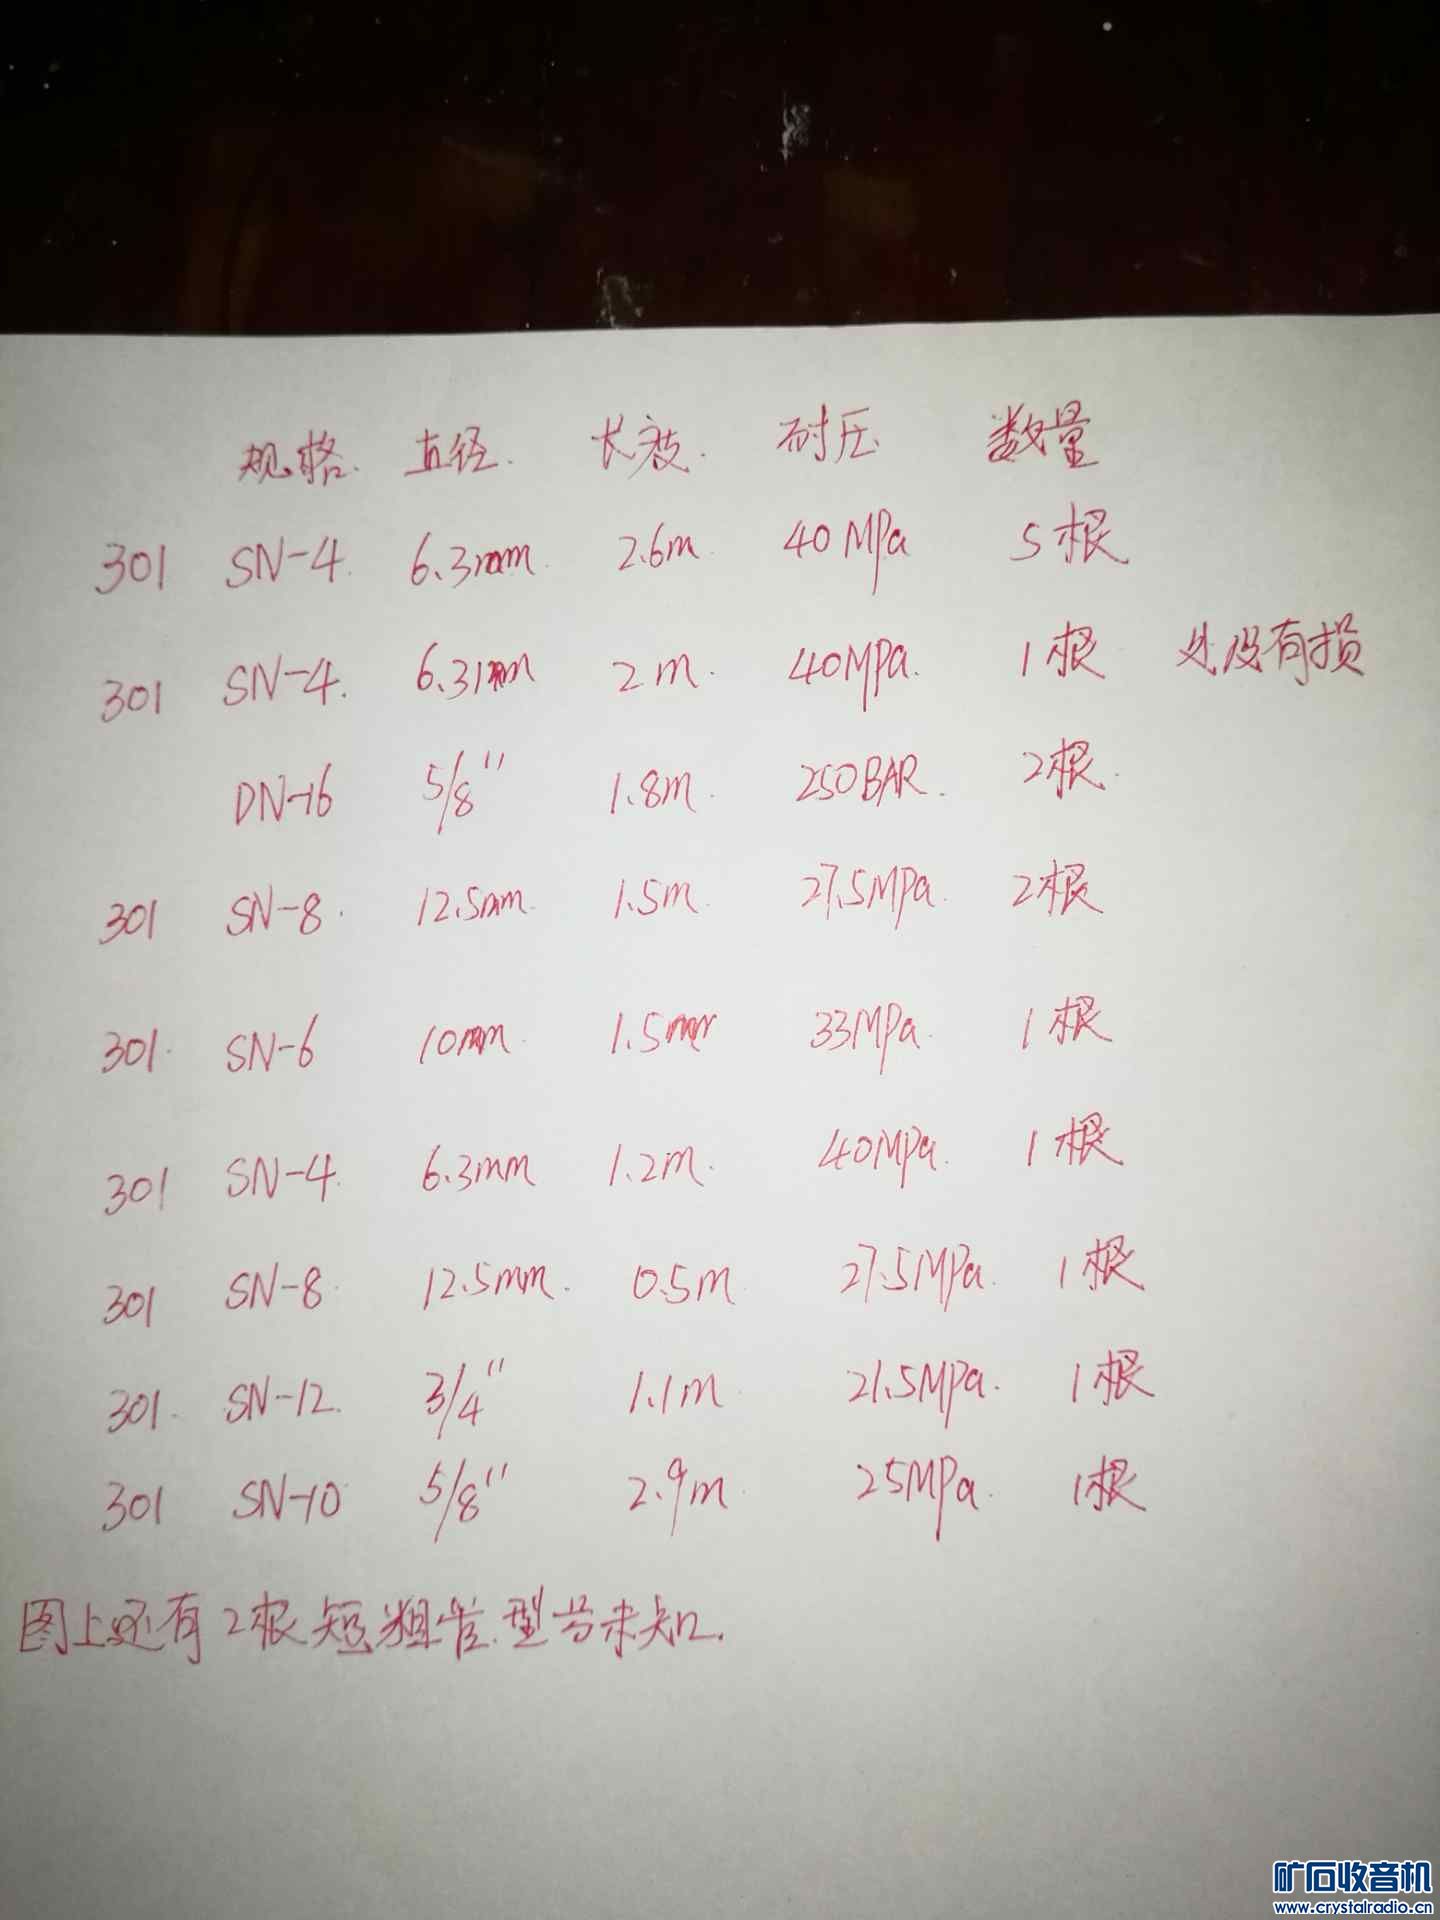 规格. 直径. 长度. 耐压 数量
301 SN-4. 6.3mm. 2.6m. 40MPa 5根
301 SN-4. 6.3mm 2m. 40MPa. 1根 外皮有损
DN-16 5/8" 1.8m. 250BAR. 2根.
301 SN-8. 12.5mm. 1.5m. 27.5MPa. 2根
301. SN-6 10mm. 1.5m 33MPa. 1根
301 SN-4. 6.3mm 1.2m. 40MPa. 1根
301 SN-8. 12.5mm. 0.5m. 27.5MPa. 1根
301. SN-12. 3/4" 1.1m. 21.5MPa. 1根
301 SN-10 5/8" 2.9m. 25MPa. 1根
图上还有2根短粗管.型号未知.
矿石收音机
www.crystalradio.cn